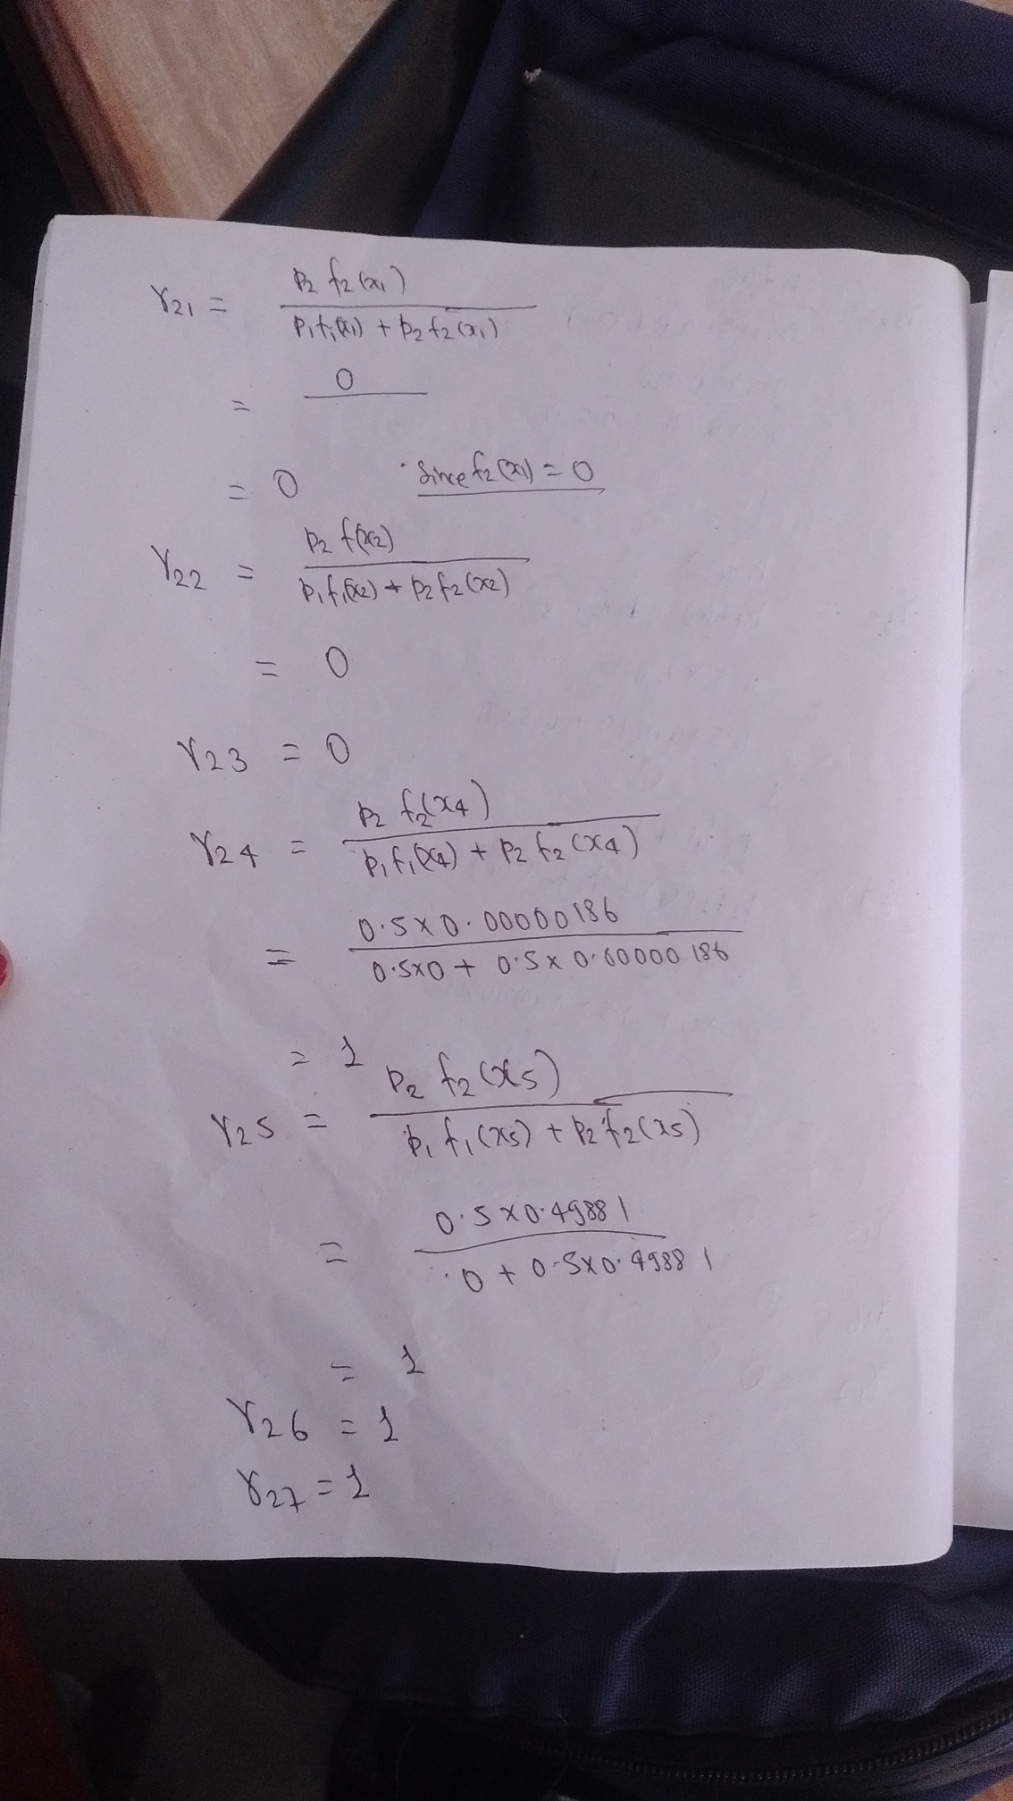 γ21 = p2 f2(x1) / p1f1(x1) + p2 f2(x1)
= 0 /
= 0 Since f2(x1) = 0
γ22 = p2 f(x2) / p1f1(x2) + p2f2(x2)
= 0
γ23 = 0
γ24 = p2 f2(x4) / p1f1(x4) + p2 f2(x4)
= 0.5×0.00000186 / 0.5×0 + 0.5×0.00000186
= 1
γ25 = p2 f2(x5) / p1 f1(x5) + p2 f2(x5)
= 0.5×0.49881 / 0 + 0.5×0.49881
= 1
γ26 = 1
γ27 = 1